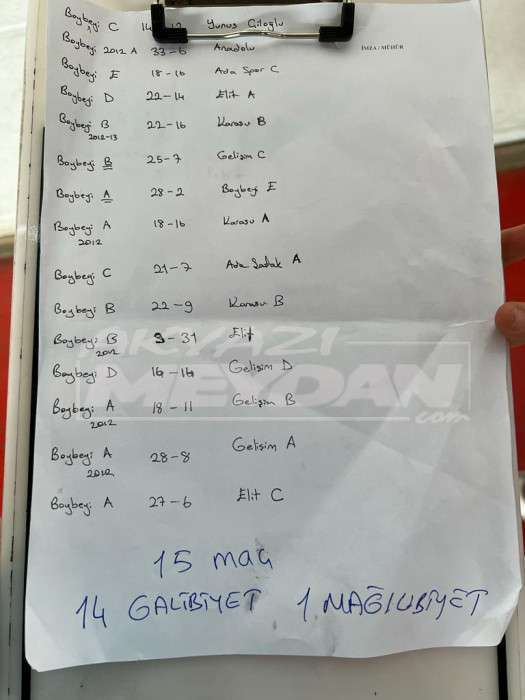 Boybeyi C 14-12 Yunus Çiloğlu
Boybeyi 2012 A 33-6 Anadolu
İMZA / MÜHÜR
Boybeyi E 18-16 Ada Spor C
Boybeyi D 22-14 Elit A
Boybeyi B 22-16 Karasu B
2012-13
Boybeyi B 25-7 Gelişim C
Boybeyi A 28-2 Boybeyi E
Boybeyi A 18-16 Karasu A
2012
Boybeyi C 21-7 Ada A
Boybeyi B 22-9 Karasu B
Boybeyi B 9-31 Elit
2012
Boybeyi D 16-14 Gelişim D
Boybeyi A 18-11 Gelişim B
2012
Boybeyi A 28-8 Gelişim A
2012
Boybeyi A 27-6 Elit C
AKYAZI
MEYDAN
.com
15 maç
14 GALİBİYET 1 MAĞLUBİYET